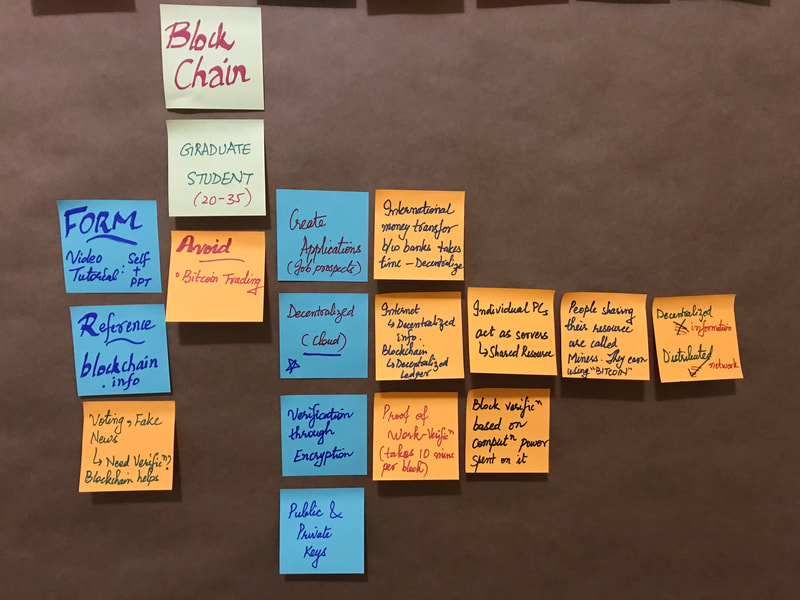 Block
Chain
GRADUATE
STUDENT
(20-35)
FORM
Video Self
Tutorial: +
PPT
Avoid
• Bitcoin Trading
Create
Applications
(Job prospects)
International
money transfor
b/w banks takes
time - Decentralize
Reference
blockchain
.info
Decentralized
(Cloud)
Internet
↳ Decentralized
info.
Blockchain
↳ Decentralized
Ledger
Individual PCs
act as servers
↳ Shared Resource
People sharing
their resource
are called
Miners. They earn
using "BITCOIN"
Decentralized
information
Distributed
network
Voting, Fake
News
↳ Need Verificⁿ?
Blockchain helps
Verification
through
Encryption
Proof of
Work-Verificⁿ
(takes 10 mins
per block)
Block verificⁿ
based on
computⁿ power
spent on it
Public &
Private
Keys